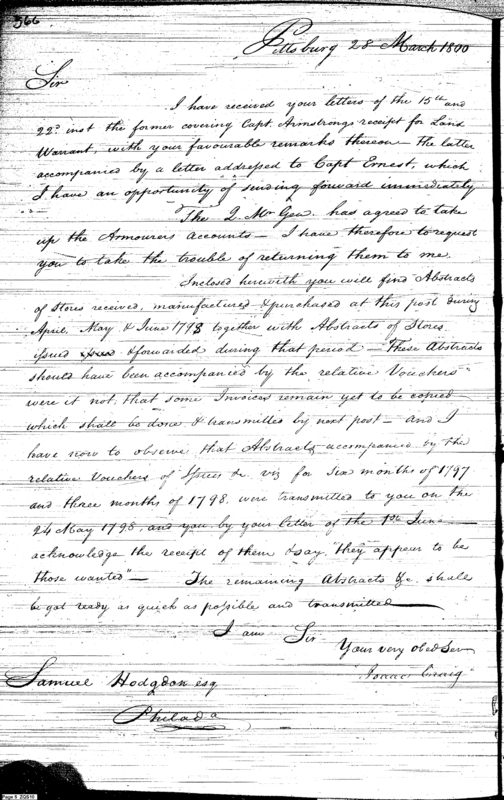 566
Pittsburg 28 March 1800
Sir
I have received your letters of the 15th and
22d inst the former covering Capt. Armstrongs receipt for Land
Warrant, with your favourable remarks thereon — the latter
accompanied by a letter addressed to Capt Ernest, which
I have an opportunity of sending forward immediately
The Q. Mr Gen. has agreed to take
up the Armourers accounts — I have therefore to request
you to take the trouble of returning them to me.
Inclosed herewith you will find Abstracts
of Stores received, manufactured & purchased at this post during
April, May & June 1798 together with Abstracts of Stores
issued & forwarded during that period — These Abstracts
should have been accompanied by the relative Vouchers
were it not, that some Invoices remain yet to be copied
which shall be done & transmitted by next post — and I
have now to observe that Abstracts accompanied by the
relative Vouchers of &c. viz for Six months of 1797
and three months of 1798 were transmitted to you on the
24 May 1798, and you by your letter of the 1st June —
acknowledge the receipt of them & say, "they appear to be
those wanted" — The remaining Abstracts &c. shall
be got ready as quick as possible and transmitted
I am Sir
Your very obed Ser
Isaac Craig
Samuel Hodgdon esq
Philada
Page 5